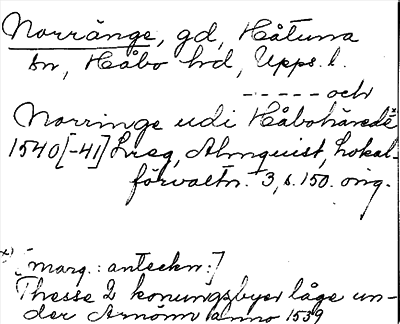 Norränge, gd, Håtuna
sn, Håbo hd, Upps. l.
- - - - - och
Norringe udi Håbohäredt x)
1540[-41] Lreg, Almquist, Lokal-
förvaltn. 3, s. 150. orig.
x) [marg.: anteckn:]
Thesse 2 konungsbyer låge un-
der Arnöön anno 1539